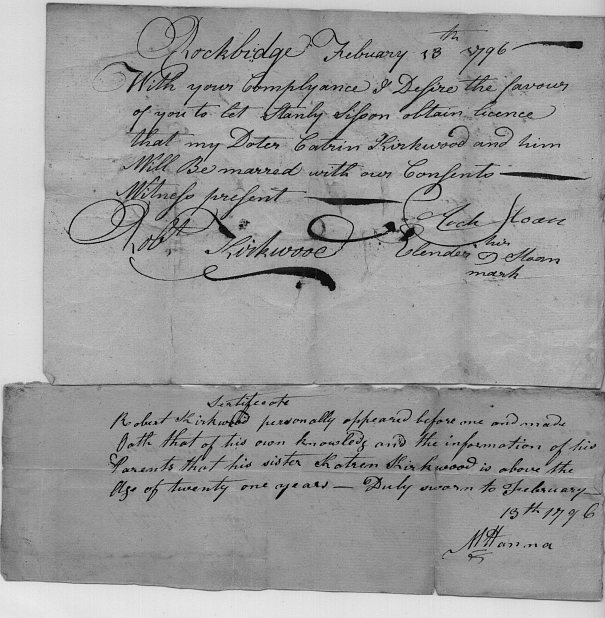 Rockbidge Febuary 13th 1796
With your Complyance I Desire the favour
of you to let Stanly Sisson obtain licence
that my Doter Catrin Kirkwood and him
Will Be marred with our Consents
Witness present
Robt Kirkwood
Sloan
her
Elender Sloan
mark
Sertificate
Robert Kirkwood personally appeared before me and made
Oath that of his own knowledg and the information of his
Parents that his sister Katren Kirkwood is above the
Age of twenty one years — Duly sworn to February
13th 1796
M Hanna